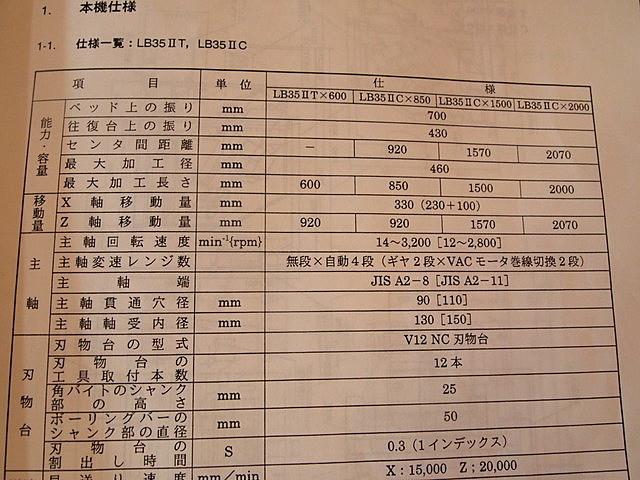 1. 本機仕様
1-1. 仕様一覧：LB35ⅡT, LB35ⅡC
項目 単位 仕様
LB35ⅡT×600 LB35ⅡC×850 LB35ⅡC×1500 LB35ⅡC×2000
能力・容量
ベッド上の振り mm 700
往復台上の振り mm 430
センタ間距離 mm － 920 1570 2070
最大加工径 mm 460
最大加工長さ mm 600 850 1500 2000
移動量
X軸移動量 mm 330（230＋100）
Z軸移動量 mm 920 920 1570 2070
主軸
主軸回転速度 min⁻¹{rpm} 14～3,200［12～2,800］
主軸変速レンジ数 無段×自動4段（ギヤ2段×VACモータ巻線切換2段）
主軸端 JIS A2-8［JIS A2-11］
主軸貫通穴径 mm 90［110］
主軸軸受内径 mm 130［150］
刃物台
刃物台の型式 V12 NC刃物台
刃物台の
工具取付本数 12本
角バイトのシャンク
部の高さ mm 25
ボーリングバーの
シャンク部の直径 mm 50
刃物台の
割出し時間 S 0.3（1インデックス）
早送り速度 mm/min X：15,000 Z；20,000